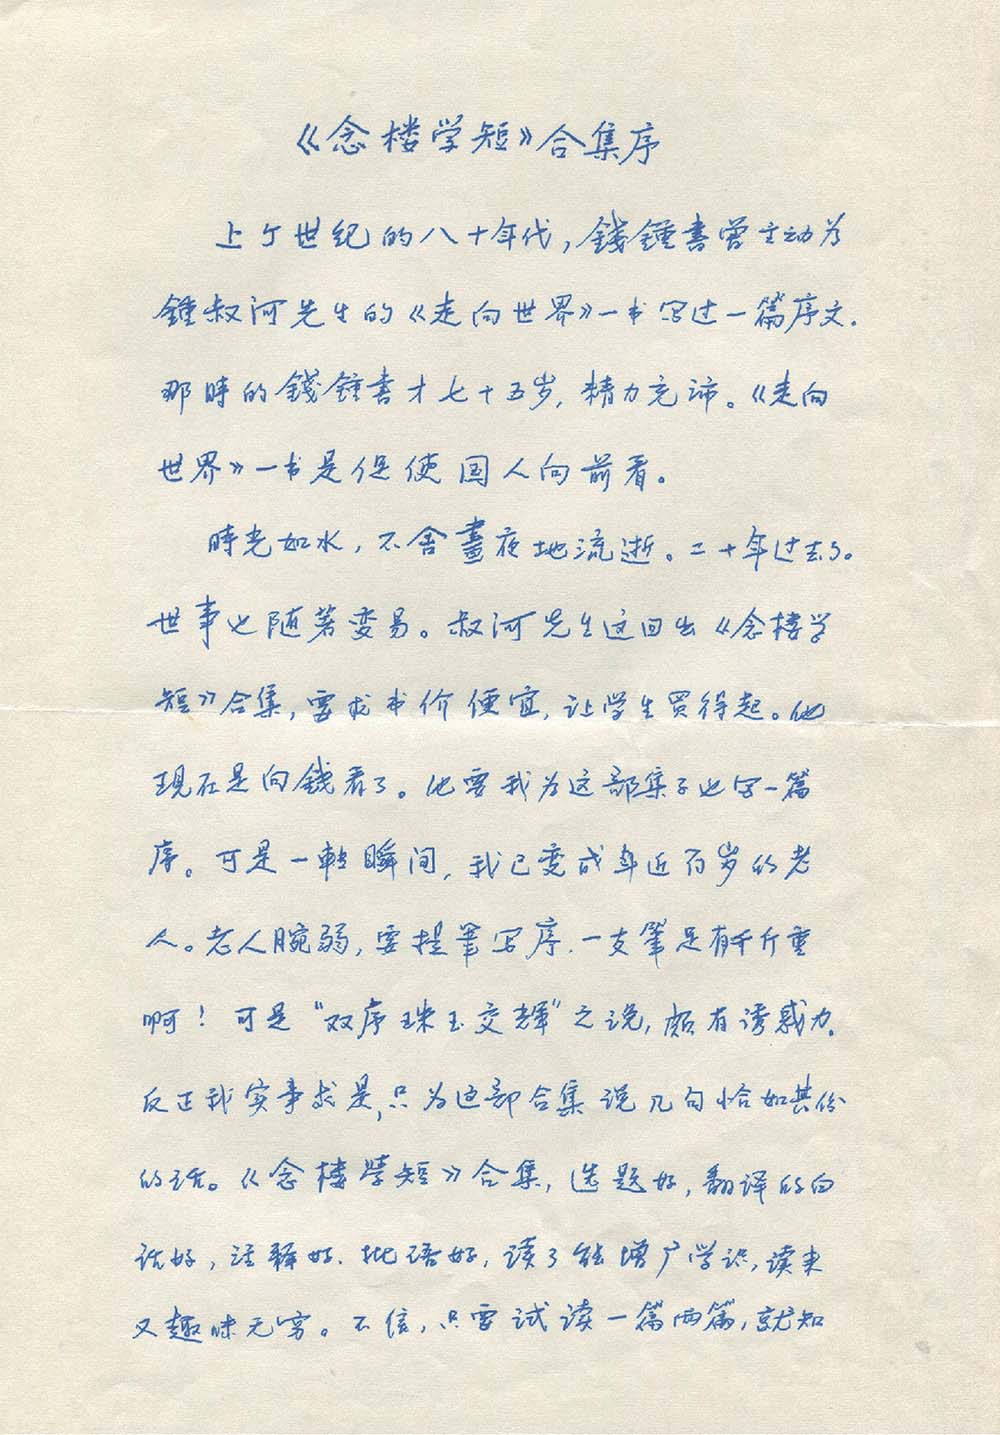 《念楼学短》合集序
上个世纪的八十年代，錢鍾書曾主动为
鍾叔河先生的《走向世界》一书写过一篇序文．
那時的錢鍾書才七十五岁，精力充沛。《走向
世界》一书是促使国人向前看。
時光如水，不舍晝夜地流逝。二十年过去了。
世事也随著变易。叔河先生这回出《念楼学
短》合集，要求书价便宜，让学生买得起。他
現在是向錢看了。他要我为这部集子也写一篇
序。可是一轉瞬间，我已变成年近百岁的老
人。老人腕弱，要提筆写序．一支筆足有千斤重
啊！可是“双序珠玉交輝”之说，颇有诱惑力．
反正我实事求是，只为这部合集说几句恰如其份
的话。《念楼学短》合集，选题好，翻译的白
话好，注释好．批语好，读了能增广学识，读来
又趣味无穷。不信，只要试读一篇两篇，就知